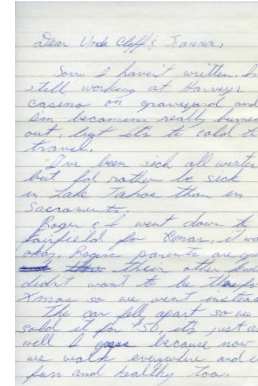 Dear Uncle Cliff & Joanna,
Sorry I haven't written. I'm
still working at Harveys
casino on graveyard and
I'm becoming really burned
out, but it's to cold to
travel.
I've been sick all winter
but I'd rather be sick
in Lake Tahoe than in
Sacramento.
Roger & I went down to
Fairfield for Xmas, it was
okay, Rogers parents are
their other
didn't want to be there for
Xmas so we went instead
The car fell apart so we
sold it for $50, it's just as
well I guess because now
we walk everywhere and it's
fun and healthy too.